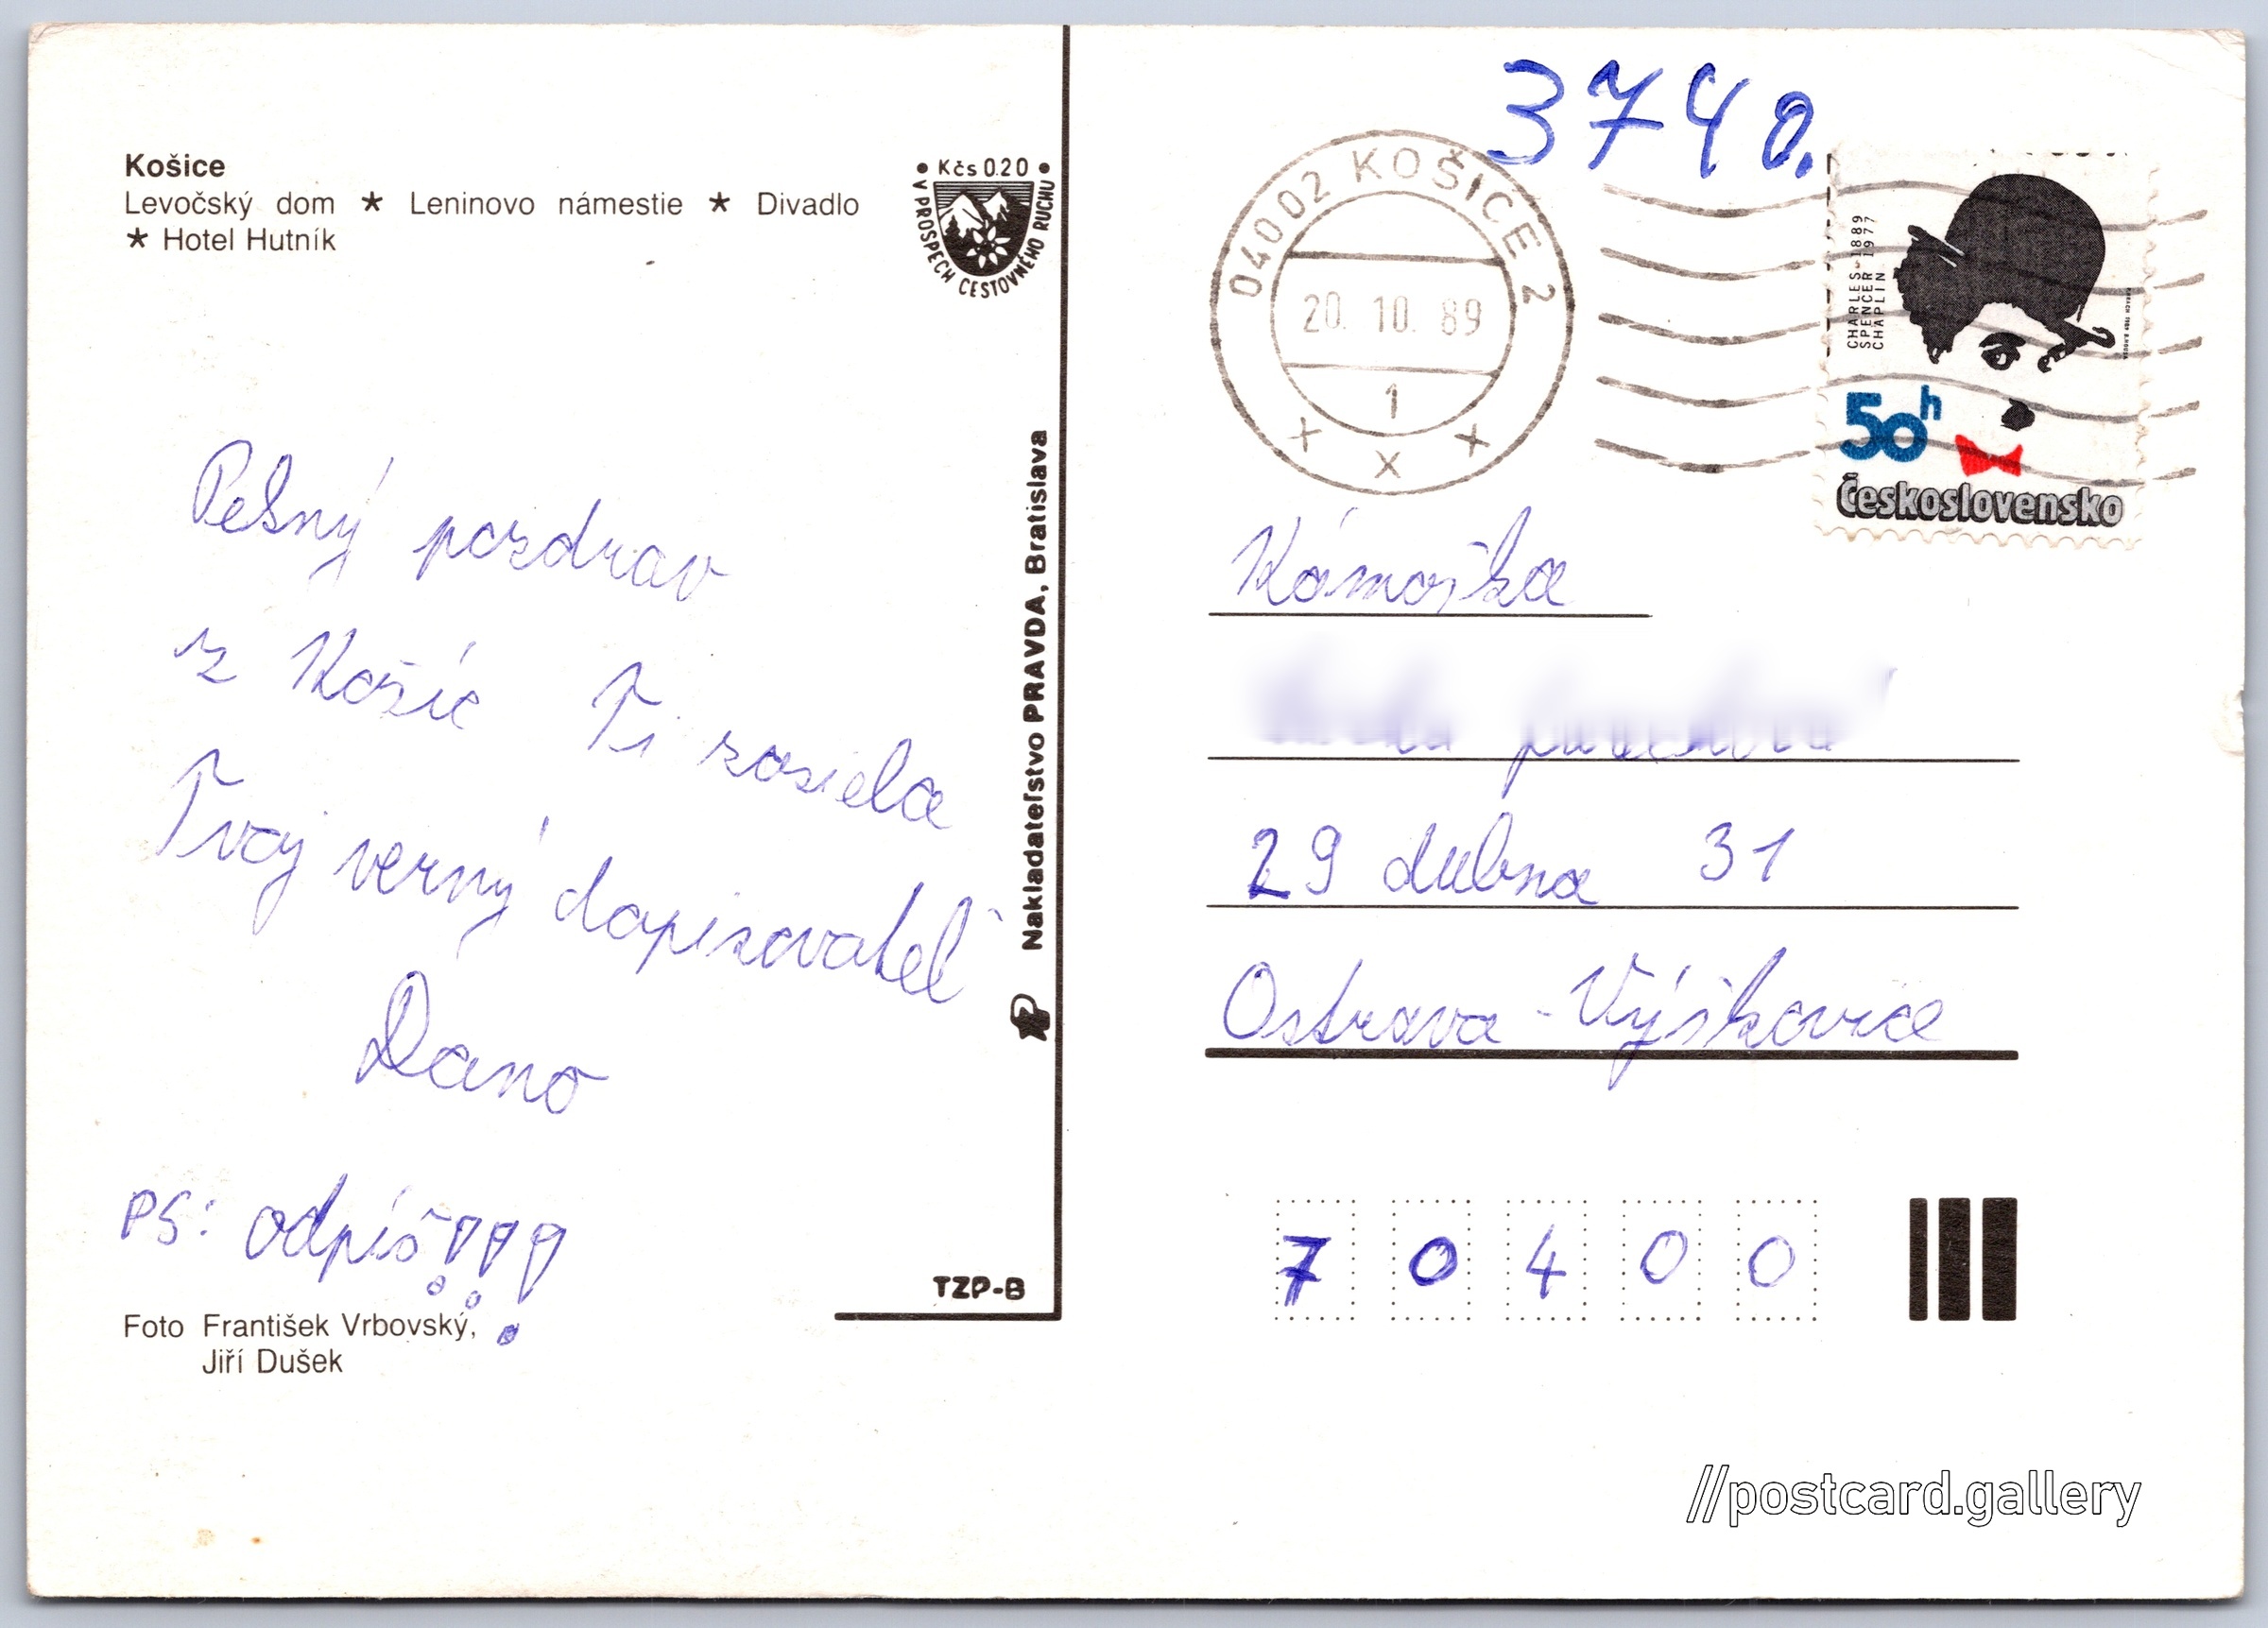 Košice
Levočský dom ★ Leninovo námestie ★ Divadlo
★ Hotel Hutník
• Kčs 0.20 •
V PROSPECH CESTOVNÉHO RUCHU
Pekný pozdrav
z Košíc Ti zasiela
Tvoj verný dopisovateľ
Dano
PS: odpíš!!!
Foto František Vrbovský,
Jiří Dušek
TZP-B
Nakladateľstvo PRAVDA, Bratislava
3740.
04002 KOŠICE 2
20. 10. 89
1
CHARLES 1889
SPENCER 1977
CHAPLIN
50h
Československo
Kámoška
29 dubna 31
Ostrava - Výškovice
7 0 4 0 0
//postcard.gallery